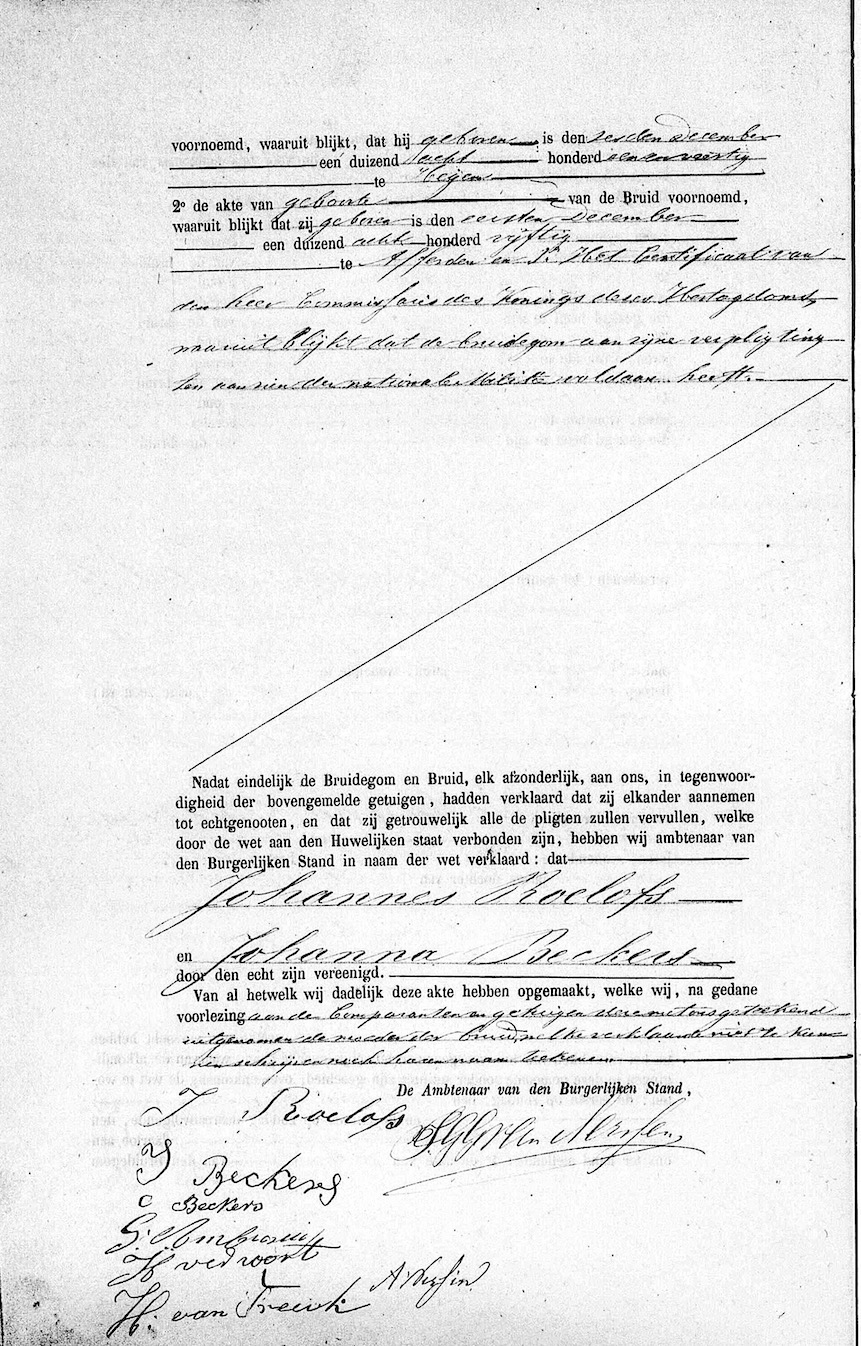 voornoemd, waaruit blijkt, dat hij geboren is den sesden December
een duizend acht honderd een en veertig
te Heijen
2º de akte van geboorte van de Bruid voornoemd,
waaruit blijkt dat zij geboren is den eersten December
een duizend acht honderd vijftig
te Afferden en 3º Het Certificaat van
den heer Commissaris des Konings deses Hertogdoms,
waaruit blijkt dat de bruidegom aan zijne verpligting
ten aanzien der nationale Militie voldaan heeft.
Nadat eindelijk de Bruidegom en Bruid, elk afzonderlijk, aan ons, in tegenwoor-
digheid der bovengemelde getuigen, hadden verklaard dat zij elkander aannemen
tot echtgenooten, en dat zij getrouwelijk alle de pligten zullen vervullen, welke
door de wet aan den Huwelijken staat verbonden zijn, hebben wij ambtenaar van
den Burgerlijken Stand in naam der wet verklaard: dat
Johannes Roelofs
en Johanna Beckers
door den echt zijn vereenigd.
Van al hetwelk wij dadelijk deze akte hebben opgemaakt, welke wij, na gedane
voorlezing aan de Comparanten en getuigen dese met ons getekend
uitgenomen de moeder der bruid, welke verklaarde niet te kun
nen schrijven noch haren naam tekenen
De Ambtenaar van den Burgerlijken Stand,
J Roelofs
J Beckers
C Beckers
H van